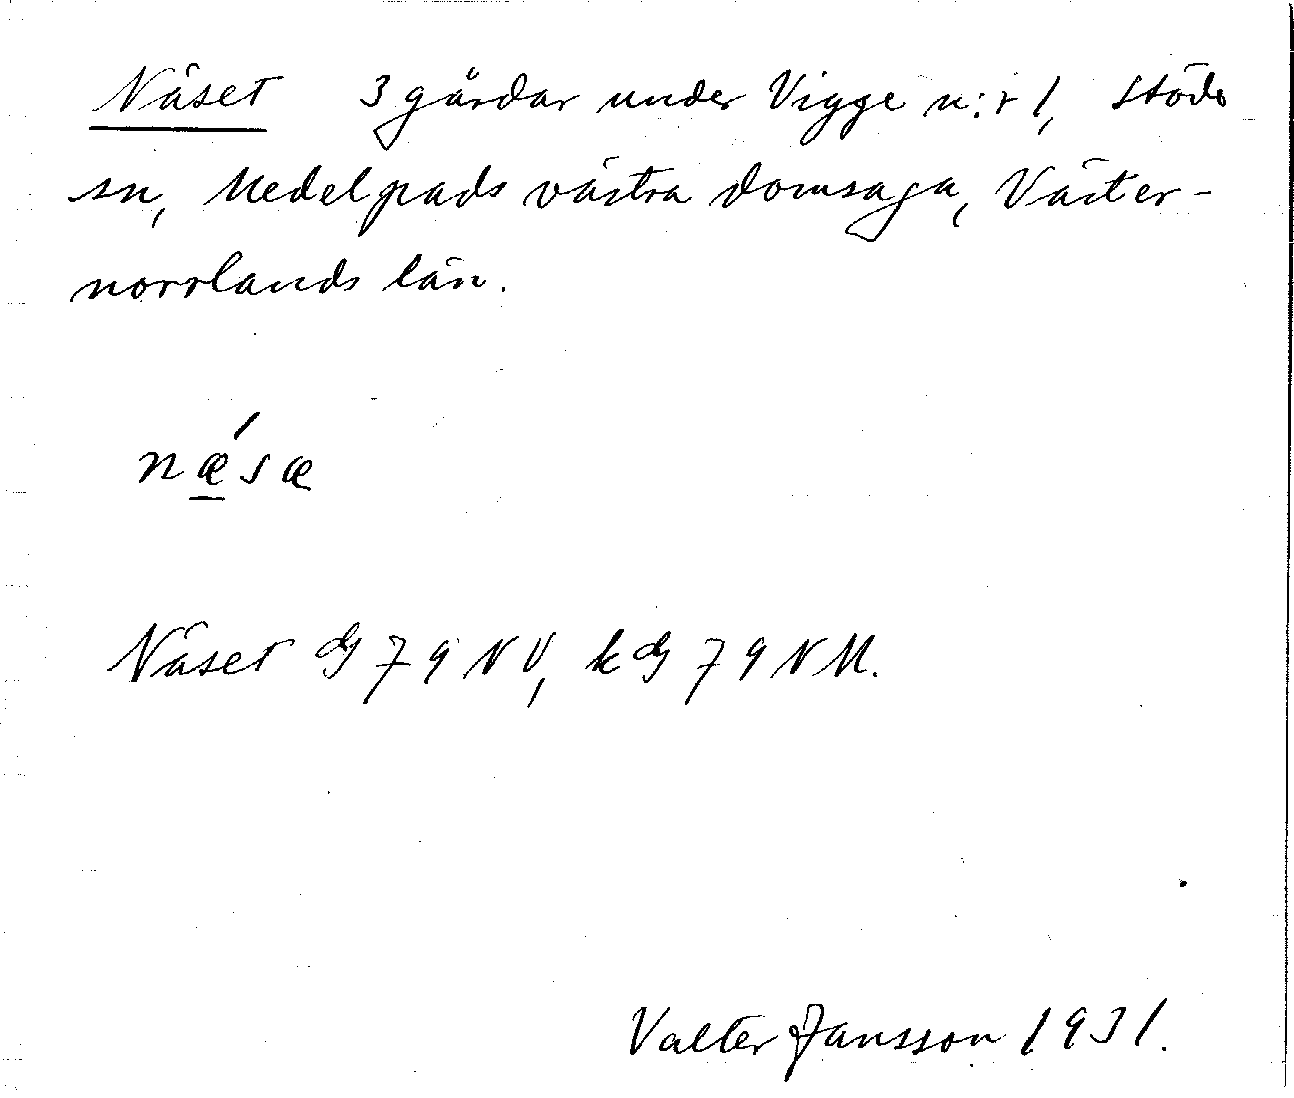 Näset 3 gårdar under Vigge n:r 1, Stöde
sn, Medelpads västra domsaga, Väster-
norrlands län.
nǽ̲sæ
Näset dg 79 NV, k dg 79 NM.
Valter Jansson 1931.